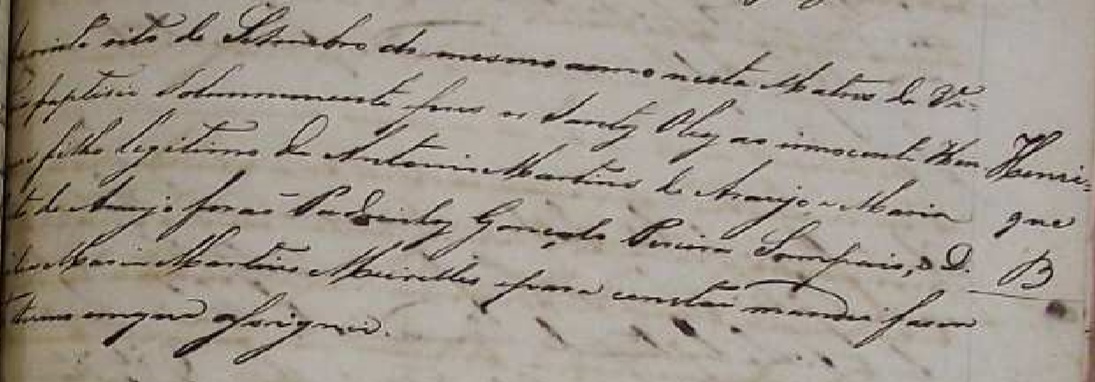 oito de Setembro do mesmo anno nesta Matris de Vi-
baptisei Solemnemente e pus os Santos Oleos ao innocente Hen Henri-
filho legitimo de Antonio Martins de Araujo, e Maria que
de Araujo forão Padrinhos Gonçalo Pereira Sampaio, e D. B
Maria Martins Meirelles e para constar mandei faser
termo em que assignei.